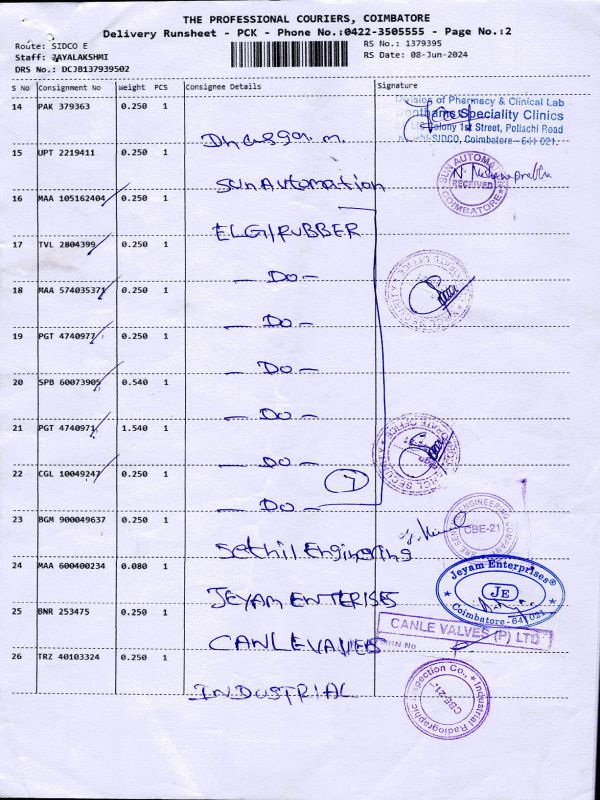 THE PROFESSIONAL COURIERS, COIMBATORE
Delivery Runsheet - PCK - Phone No.:0422-3505555 - Page No.:2
Route: SIDCO E
RS No.: 1379395
Staff: JAYALAKSHMI
RS Date: 08-Jun-2024
DRS No.: DCJB137939502
S No Consignment No Weight PCS Consignee Details Signature
14 PAK 379363 0.250 1
Division of Pharmacy & Clinical Lab
Speciality Clinics
Colony 1st Street, Pollachi Road
SIDCO, Coimbatore - 641 021.
15 UPT 2219411 0.250 1
Sun Automation
SUN AUTOMATION RECEIVED COIMBATORE
16 MAA 105162404 0.250 1
ELGI RUBBER
17 TVL 2804399 0.250 1
— Do —
18 MAA 574035371 0.250 1
— Do —
19 PGT 4740977 0.250 1
— Do —
20 SPB 60073905 0.540 1
— Do —
21 PGT 4740971 1.540 1
— Do —
22 CGL 10049247 0.250 1
7
— Do —
23 BGM 900049637 0.250 1
CBE-21
Sethil Engineering
24 MAA 600400234 0.080 1
Jeyam Enterprises®
JE
Coimbatore - 641 021
JEYAM ENTERISES
25 BNR 253475 0.250 1
CANLE VALVES (P) LTD
CANLE VALVES
26 TRZ 40103324 0.250 1
Industrial Radiographic Inspection Co.,
CBE-21.
INDUSTRIAL